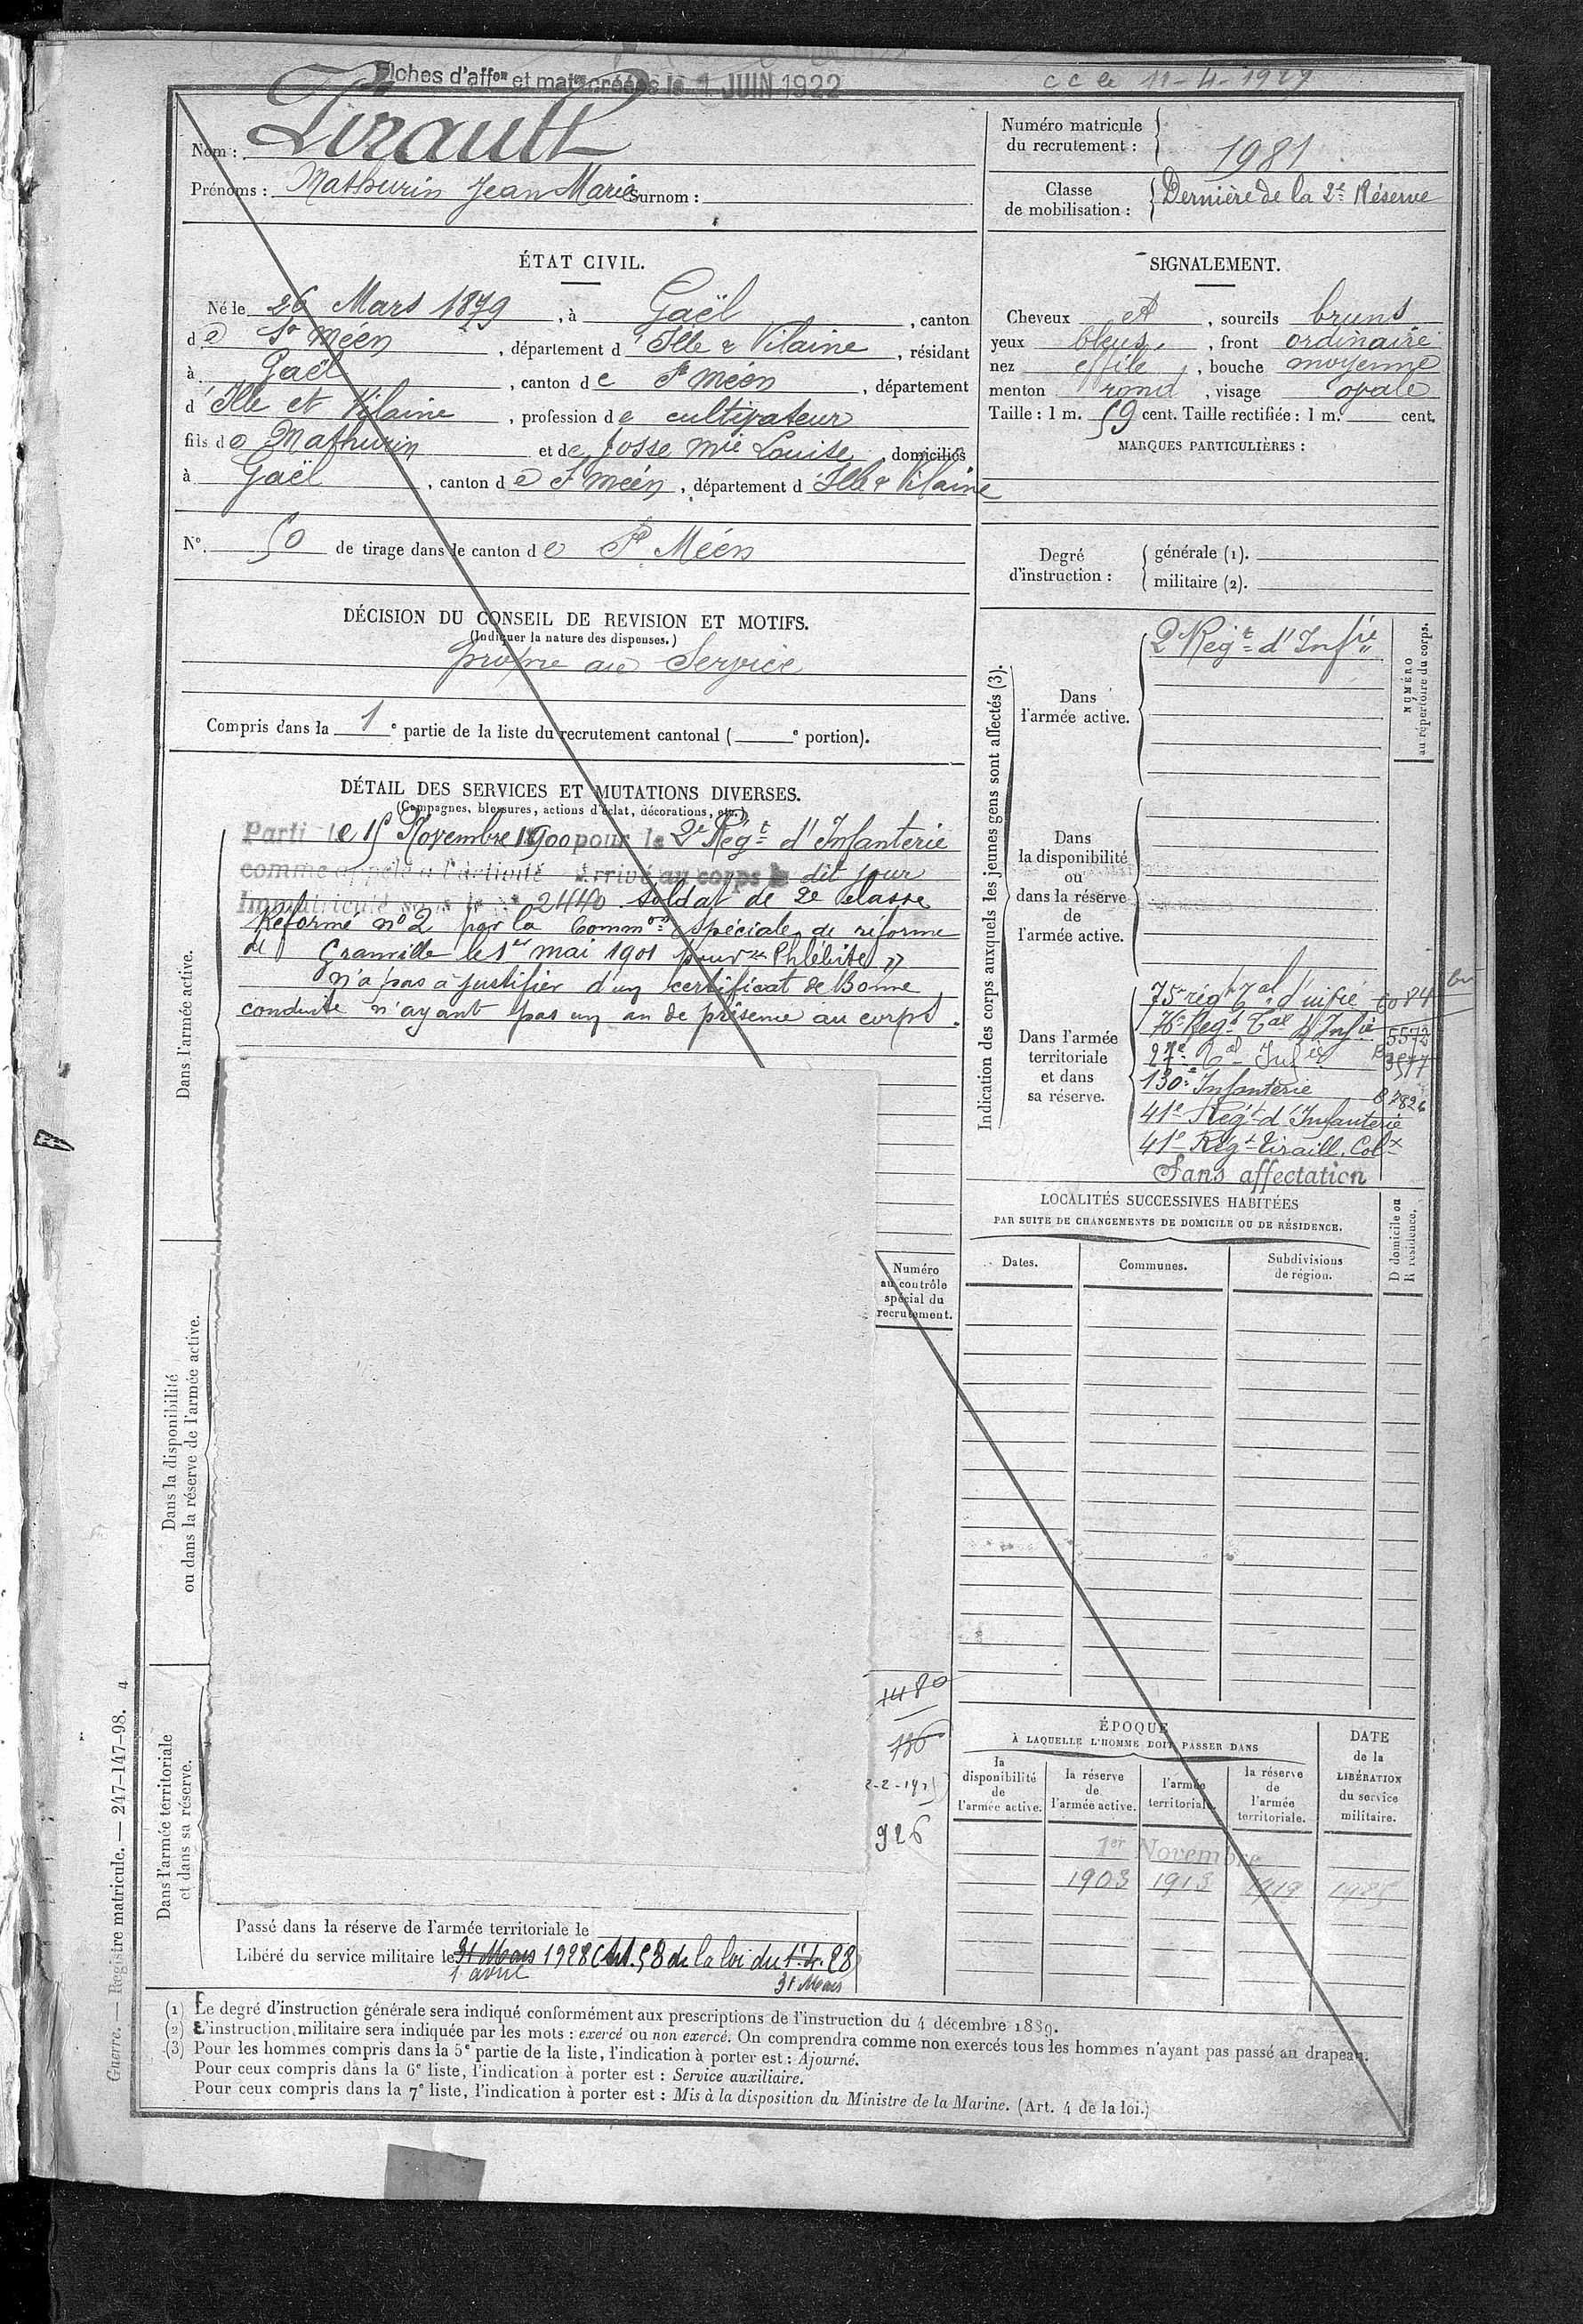 Fiches d'affon et matle créées le 1 JUIN 1922
cc le 11-4-1927
Nom : Pirault
Prénoms : Mathurin Jean Marie Surnom :
Numéro matricule du recrutement : 1981
Classe de mobilisation : Dernière de la 2e Réserve
ÉTAT CIVIL.
Né le 26 Mars 1879, à Gaël, canton
de St Méen, département d'Ille & Vilaine, résidant
à Gaël, canton de St Méen, département
d'Ille et Vilaine, profession de cultivateur
fils de Mathurin et de Josse Mie Louise, domiciliés
à Gaël, canton de St Méen, département d'Ille & Vilaine
N° 50 de tirage dans le canton de St Méen
SIGNALEMENT.
Cheveux et, sourcils bruns
yeux bleus, front ordinaire
nez effilé, bouche moyenne
menton rond, visage ovale
Taille : 1 m. 59 cent. Taille rectifiée : 1 m. cent.
MARQUES PARTICULIÈRES :
Degré d'instruction : générale (1).
militaire (2).
DÉCISION DU CONSEIL DE REVISION ET MOTIFS.
(Indiquer la nature des dispenses.)
propre au Service
Compris dans la 1e partie de la liste du recrutement cantonal ( e portion).
DÉTAIL DES SERVICES ET MUTATIONS DIVERSES.
(Campagnes, blessures, actions d'éclat, décorations, etc.)
Dans l'armée active.
Parti le 15 Novembre 1900 pour le 2e Régt d'Infanterie
comme appelé à l'activité Arrivé au corps le dit jour
Immatriculé sous le N° 2440 soldat de 2e classe
Réformé n° 2 par la Common spéciale de réforme
de Granville le 1er mai 1901 pour "Phlébite"
n'a pas à justifier d'un certificat de Bonne
conduite n'ayant pas un an de présence au corps.
Dans la disponibilité
ou dans la réserve de l'armée active.
Dans l'armée territoriale
et dans sa réserve.
Numéro
au contrôle
spécial du
recrutement.
926
Passé dans la réserve de l'armée territoriale le
Libéré du service militaire le 31 Mars 1928 (Art. 58 de la loi du 1.4.28)
1 avril
31 Mars
Indication des corps auxquels les jeunes gens sont affectés (3).
NUMÉRO
au répertoire du corps.
Dans
l'armée active.
2e Régt d'Infie
Dans
la disponibilité
ou
dans la réserve
de
l'armée active.
Dans l'armée
territoriale
et dans
sa réserve.
75e régt Tal d'infie 6084
76e Régt Tal d'Infie 5573
27e Tal Infie
130e Infanterie
41e Régt d'Infanterie
41e Régt Tiraill. Colx
Sans affectation
LOCALITÉS SUCCESSIVES HABITÉES
PAR SUITE DE CHANGEMENTS DE DOMICILE OU DE RÉSIDENCE.
Dates.
Communes.
Subdivisions
de région.
D domicile ou
R résidence.
ÉPOQUE
À LAQUELLE L'HOMME DOIT PASSER DANS
la
disponibilité
de
l'armée active.
la réserve
de
l'armée active.
l'armée
territoriale.
la réserve
de
l'armée
territoriale.
DATE
de la
LIBÉRATION
du service
militaire.
1er Novembre
1903 1913 1919 1925
(1) Le degré d'instruction générale sera indiqué conformément aux prescriptions de l'instruction du 4 décembre 1889.
(2) L'instruction militaire sera indiquée par les mots : exercé ou non exercé. On comprendra comme non exercés tous les hommes n'ayant pas passé au drapeau.
(3) Pour les hommes compris dans la 5e partie de la liste, l'indication à porter est : Ajourné.
Pour ceux compris dans la 6e liste, l'indication à porter est : Service auxiliaire.
Pour ceux compris dans la 7e liste, l'indication à porter est : Mis à la disposition du Ministre de la Marine. (Art. 4 de la loi.)
Guerre. — Registre matricule. — 247-147-98. 4